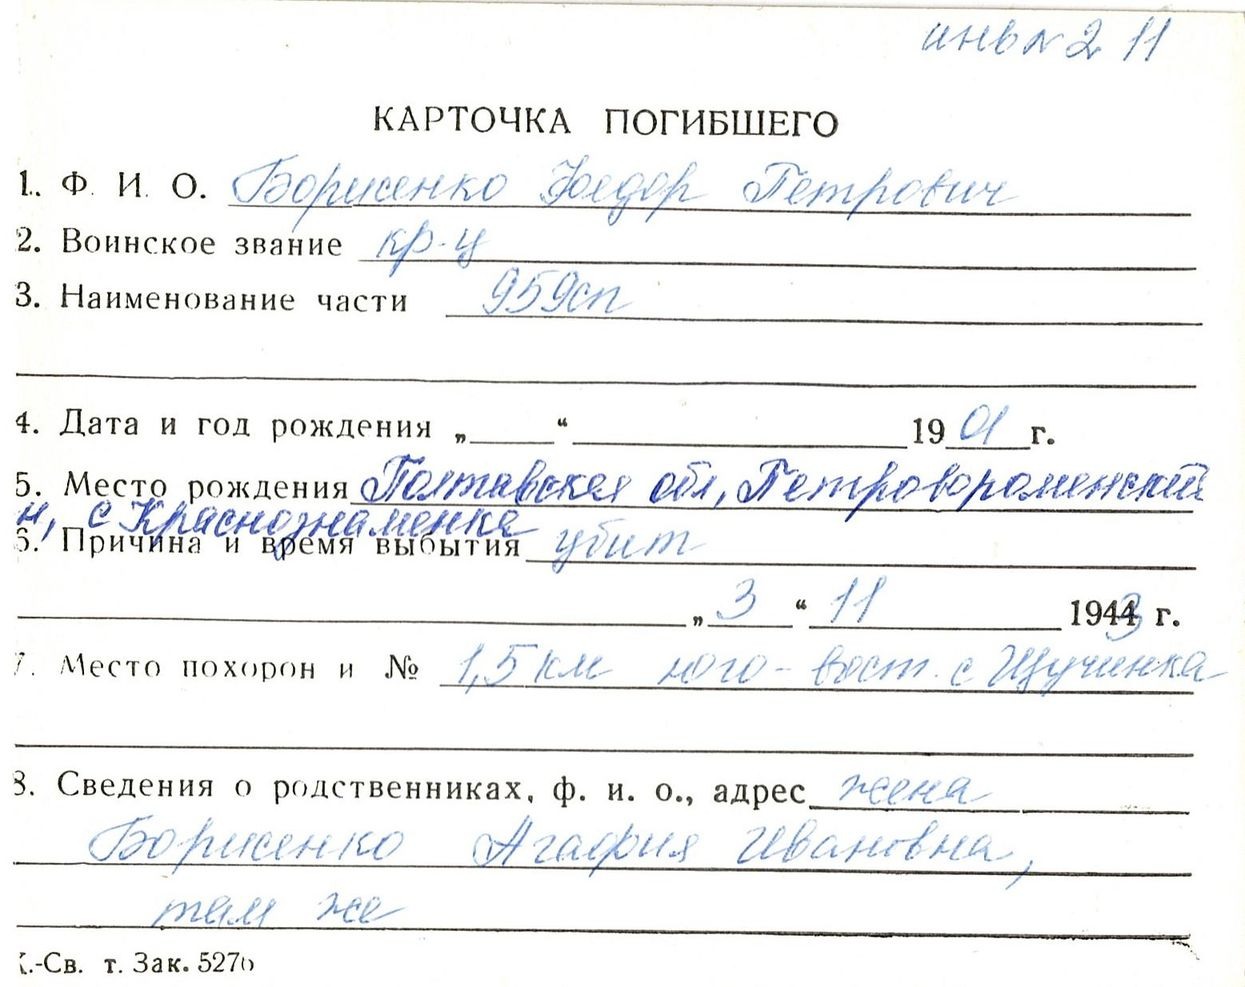 инв № 2 11
КАРТОЧКА ПОГИБШЕГО
1. Ф. И. О. Борисенко Федор Петрович
2. Воинское звание кр-ц
3. Наименование части 959сп
4. Дата и год рождения „ “ 1901 г.
5. Место рождения Полтавская обл, Петровороменский
н, с Краснознаменка
6. Причина и время выбытия убит
„ 3 “ 11 1943 г.
7. Место похорон и № 1,5 км юго-вост. с Щучинка
8. Сведения о родственниках, ф. и. о., адрес жена
Борисенко Агафия Ивановна,
там же
.-Св. т. Зак. 5276